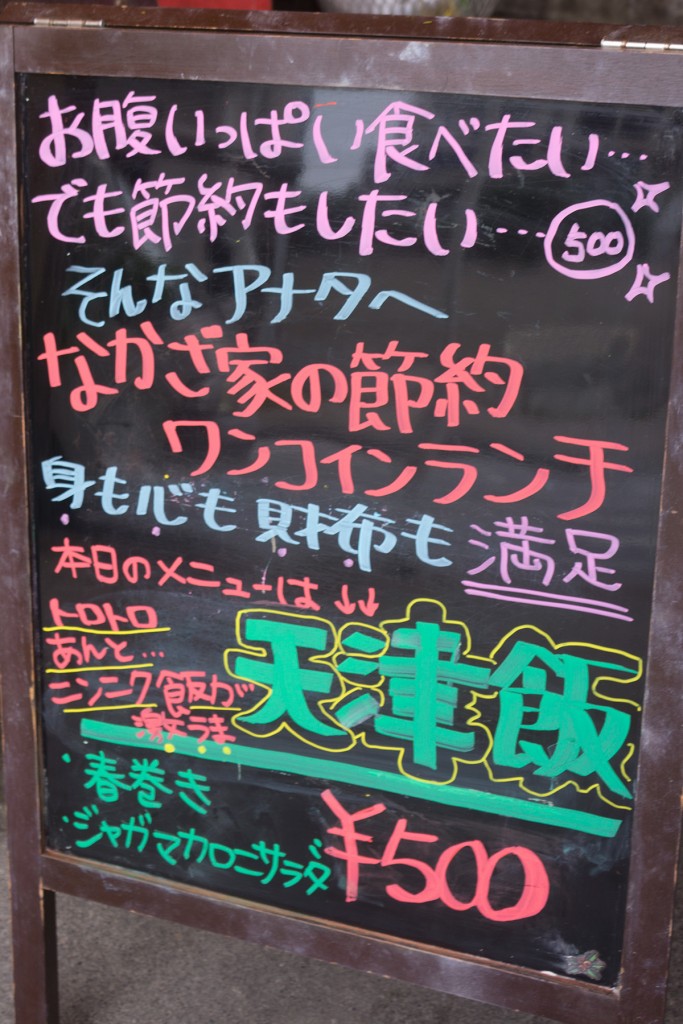 お腹いっぱい食べたい…
でも節約もしたい…500
そんなアナタへ
なかざ家の節約
ワンコインランチ
身も心も財布も満足
本日のメニューは↓↓
トロトロ
あんと…
ニンニク飯が
激うま
天津飯
・春巻き
・ジャガマカロニサラダ
¥500